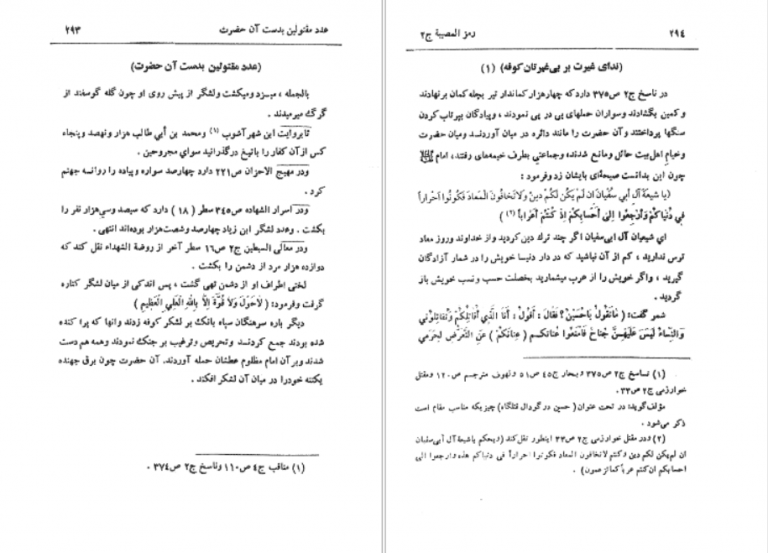 عدد مقتولین بدست آن حضرت ۲۹۳
(عدد مقتولین بدست آن حضرت)
بالجمله ، میزد ومیکشت ولشگر از پیش روی او چون گله گوسفند از
گرگ میرمیدند .
تا بروایت ابن شهر آشوب (۱) ومحمد بن أبی طالب هزار ونهصد وپنجاه
کس از آن کفار را باتیغ درگذرانید سوای مجروحین .
ودر مهیج الاحزان ص۲۲۱ دارد چهارصد سواره وپیاده را روانسه جهنم
کرد .
ودر اسرار الشهاده ص۳۴۵ سطر (۱۸) دارد که سیصد وسی هزار نفر را
بکشت . وعدد لشگر ابن زیاد چهارصد وشصت هزار بوده اند انتهی .
ودر معالی السبطین ج۲ ص۱۶ سطر آخر از روضة الشهداء نقل کند که
دوازده هزار مرد از دشمن را بکشت .
لختی اطراف او از دشمن تهی گشت ، پس اندکی از میان لشگر کناره
گرفت وفرمود: (لاحَوْلَ وَلا قُوَّةَ إِلاّ بِاللهِ العَلِيِ العَظِيمِ)
دیگر باره سرهنگان سپاه بانگ بر لشگر کوفه زدند وآنها که پراکنده
شده بودند جمع کردنسد وتحریص وترغیب بر جنگ نمودند وهمه هم دست
شدند وبر آن امام مظلوم عطشان حمله آوردند. آن حضرت چون برق جهنده
یکتنه خودرا در میان آن لشگر افکند .
(۱) مناقب ج۴ ص۱۱۰ وناسخ ج۲ ص۳۷۴ .
۲۹۴ رمز المصیبة ج۲
(ندای غیرت بر بی غیرتان کوفه) (۱)
در ناسخ ج۲ ص۳۷۵ دارد که چهار هزار کماندار تیر بچله کمان بر نهادند
و کمین بگشادند وسواران حملهای پی در پی نمودند ، وپیادگان بپرتاپ کردن
سنگها پرداختند وآن حضرت را مانند دائره در میان آوردنسد ومیان حضرت
وخیام اهل بیت حائل ومانع شدنده وجماعتی بطرف خیمه های رفتند ، امام
چون این بدانست صیحه ای بایشان زد وفرمود :
(يا شيعَةَ آلِ أبي سُفْيانَ اِنْ لَمْ يَكُنْ لَكُمْ دينٌ وَلاتَخافُونَ المَعادَ فَكُونُوا اَحْراراً
في دُنْياكُمْ وَاْرجِعُوا اِلى أَحْسابِكُمْ اِذْ كُنْتُمْ اَعْراباً) (۲)
ای شیعیان آل ابی سفیان اگر چند ترك دین کردید و از خداوند وروز معاد
ترس ندارید ، کم از آن نباشید که در دار دنیسا خویش را در شمار آزادگان
گیرید ، واگر خویش را از عرب میشمارید بخصلت حسب ونسب خویش باز
گردید .
شمر گفت: (ماتَقُولُ يَاحُسَيْنُ؟ فَقالَ : اَقُولُ : اَنَا الَّذي اُقاتِلُكُمْ وَتُقاتِلُوني
وَالنِّساءُ لَيْسَ عَلَيْهِنَّ جُناحٌ فَامْنَعُوا عُتاتَكُم (عِتاتَكُمْ) عَنِ التَّعَرُّضِ لِحَرَمي
(۱) ناسخ ج۲ ص۳۷۵ وبحار ج۴۵ ص۵۱ ولهوف مترجم ص۱۲۰ ومقتل
خوارزمی ج۲ ص۳۳.
مؤلف گوید: در تحت عنوان (حسین در گودال قتلگاه) چیزیکه مناسب مقام است
ذکر می شود .
(۲) ودر مقتل خوارزمی ج۲ ص۳۳ اینطور نقل کند (ویحکم یاشیعة آل أبی سفیان
ان لم یکن لکم دین وکنتم لاتخافون المعاد فکونوا احراراً فی دنیاکم هذه وارجعوا الی
احسابکم ان کنتم عرباً کما تزعمون) .